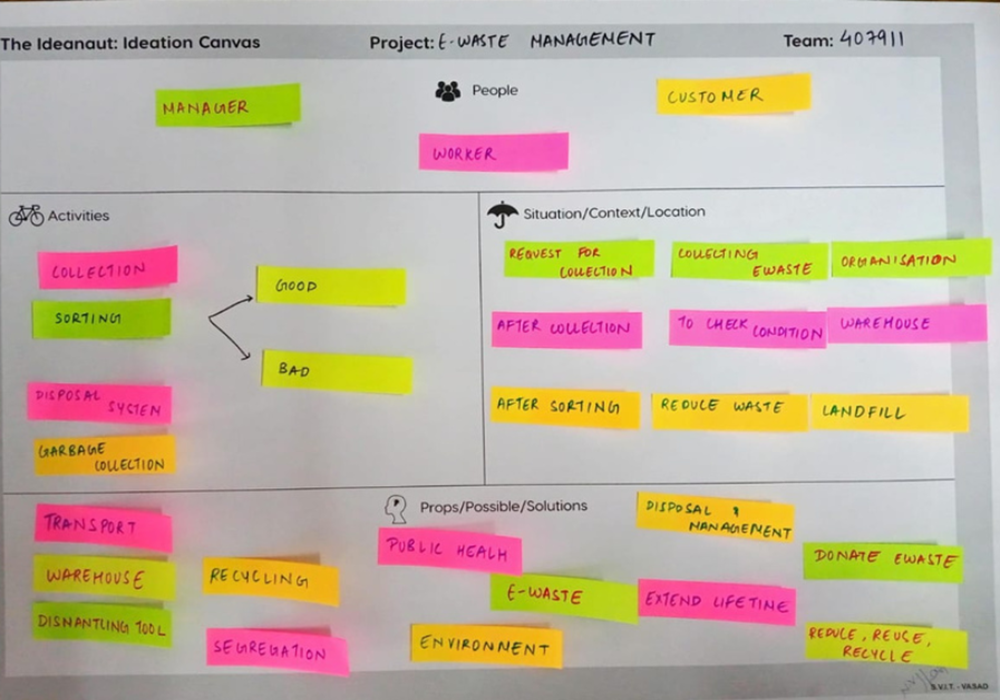 The Ideanaut: Ideation Canvas Project: E-WASTE MANAGEMENT Team: 407911
People
MANAGER
CUSTOMER
WORKER
Activities
COLLECTION
SORTING
GOOD
BAD
DISPOSAL
SYSTEM
GARBAGE
COLLECTION
Situation/Context/Location
REQUEST FOR
COLLECTION
COLLECTING
EWASTE
ORGANISATION
AFTER COLLECTION
TO CHECK CONDITION
WAREHOUSE
AFTER SORTING
REDUCE WASTE
LANDFILL
Props/Possible/Solutions
TRANSPORT
WAREHOUSE
DISMANTLING TOOL
RECYCLING
SEGREGATION
PUBLIC HEALH
E-WASTE
ENVIRONMENT
DISPOSAL &
MANAGEMENT
EXTEND LIFETIME
DONATE EWASTE
REDUCE, REUSE,
RECYCLE
S.V.I.T. - VASAD